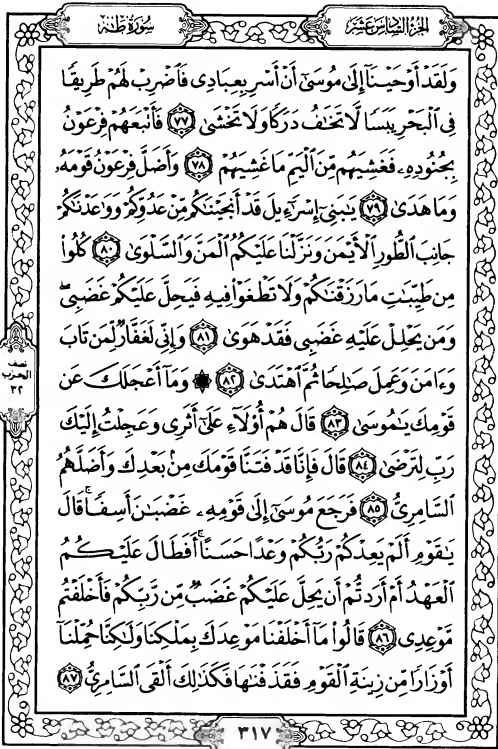 سُورَةُ طٰه
الجُزءُ السَّادِسَ عَشَر
وَلَقَدْ أَوْحَيْنَآ إِلَىٰ مُوسَىٰٓ أَنْ أَسْرِ بِعِبَادِى فَٱضْرِبْ لَهُمْ طَرِيقًا
فِى ٱلْبَحْرِ يَبَسًا لَّا تَخَٰفُ دَرَكًا وَلَا تَخْشَىٰ ٧٧ فَأَتْبَعَهُمْ فِرْعَوْنُ
بِجُنُودِهِۦ فَغَشِيَهُم مِّنَ ٱلْيَمِّ مَا غَشِيَهُمْ ٧٨ وَأَضَلَّ فِرْعَوْنُ قَوْمَهُۥ
وَمَا هَدَىٰ ٧٩ يَٰبَنِىٓ إِسْرَٰٓءِيلَ قَدْ أَنجَيْنَٰكُم مِّنْ عَدُوِّكُمْ وَوَٰعَدْنَٰكُمْ
جَانِبَ ٱلطُّورِ ٱلْأَيْمَنَ وَنَزَّلْنَا عَلَيْكُمُ ٱلْمَنَّ وَٱلسَّلْوَىٰ ٨٠ كُلُوا۟
مِن طَيِّبَٰتِ مَا رَزَقْنَٰكُمْ وَلَا تَطْغَوْا۟ فِيهِ فَيَحِلَّ عَلَيْكُمْ غَضَبِى ۖ
وَمَن يَحْلِلْ عَلَيْهِ غَضَبِى فَقَدْ هَوَىٰ ٨١ وَإِنِّى لَغَفَّارٌ لِّمَن تَابَ
وَءَامَنَ وَعَمِلَ صَٰلِحًا ثُمَّ ٱهْتَدَىٰ ٨٢ ۞ وَمَآ أَعْجَلَكَ عَن
قَوْمِكَ يَٰمُوسَىٰ ٨٣ قَالَ هُمْ أُو۟لَآءِ عَلَىٰٓ أَثَرِى وَعَجِلْتُ إِلَيْكَ
رَبِّ لِتَرْضَىٰ ٨٤ قَالَ فَإِنَّا قَدْ فَتَنَّا قَوْمَكَ مِنۢ بَعْدِكَ وَأَضَلَّهُمُ
ٱلسَّامِرِىُّ ٨٥ فَرَجَعَ مُوسَىٰٓ إِلَىٰ قَوْمِهِۦ غَضْبَٰنَ أَسِفًا ۚ قَالَ
يَٰقَوْمِ أَلَمْ يَعِدْكُمْ رَبُّكُمْ وَعْدًا حَسَنًا ۚ أَفَطَالَ عَلَيْكُمُ
ٱلْعَهْدُ أَمْ أَرَدتُّمْ أَن يَحِلَّ عَلَيْكُمْ غَضَبٌ مِّن رَّبِّكُمْ فَأَخْلَفْتُم
مَّوْعِدِى ٨٦ قَالُوا۟ مَآ أَخْلَفْنَا مَوْعِدَكَ بِمَلْكِنَا وَلَٰكِنَّا حُمِّلْنَآ
أَوْزَارًا مِّن زِينَةِ ٱلْقَوْمِ فَقَذَفْنَٰهَا فَكَذَٰلِكَ أَلْقَى ٱلسَّامِرِىُّ ٨٧
نصف
الحزب
٣٢
٣١٧